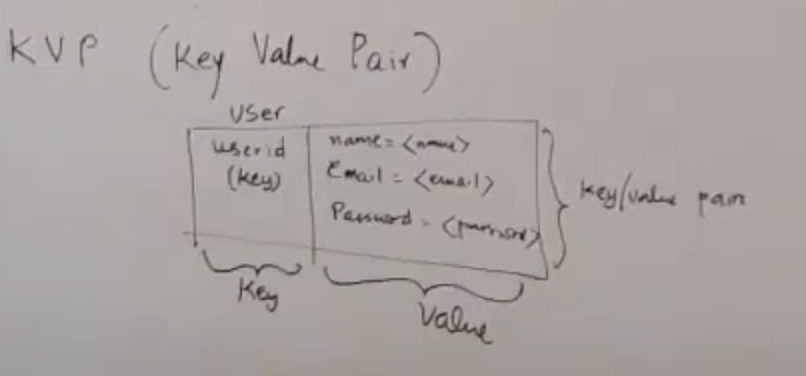 KVP (Key Value Pair)
user
userid
(key)
name = <name>
Email = <email>
Password = <password>
key/value pair
Key
Value